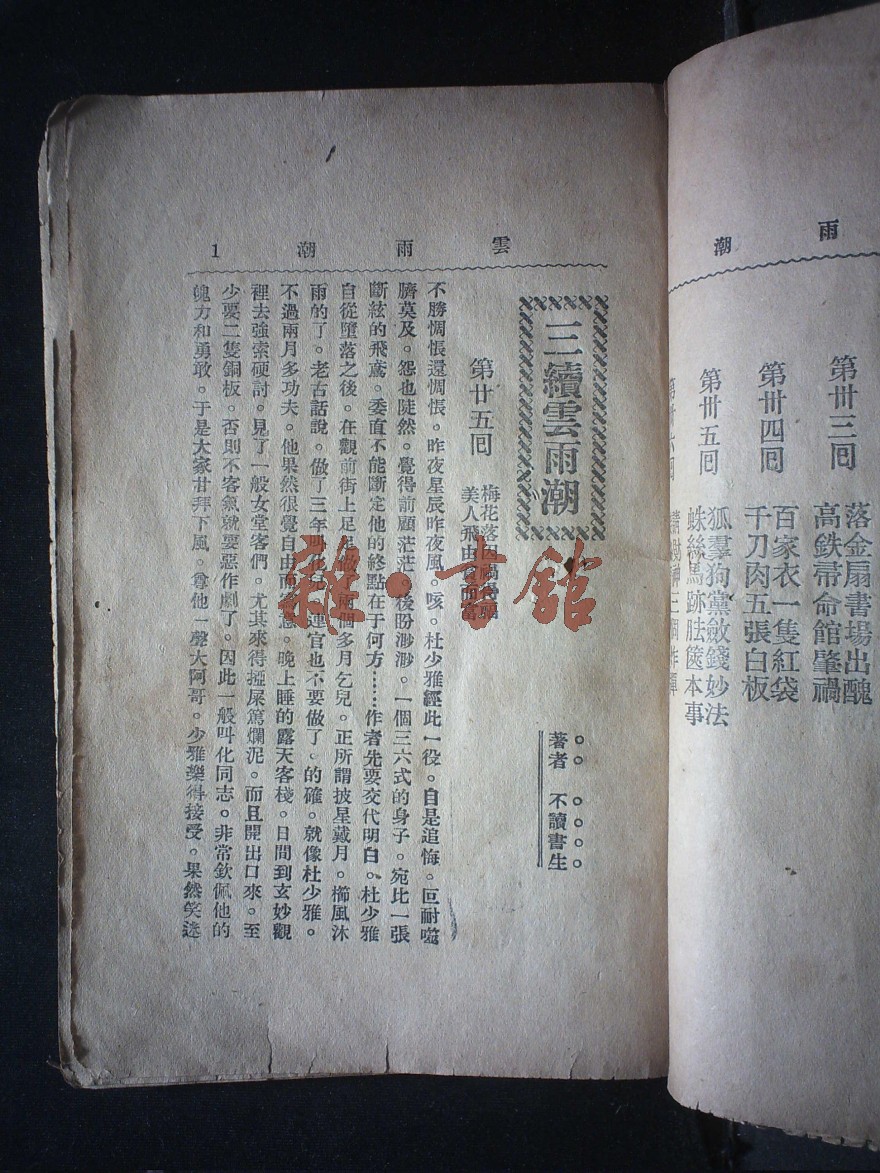 雨 潮
第卅三回
落金扇書場出醜
高鉄帚命館肇禍
第卅四回
百家衣一隻紅袋
千刀肉五張白板
第卅五回
狐羣狗黨斂錢妙法
蛛絲馬跡胠篋本事
雲 雨 潮 1
三續雲雨潮
著者 不讀書生
第廿五回
梅花落
美人飛由貧而富
不勝惆悵還惆悵。昨夜星辰昨夜風。咳。杜少雅經此一役。自是追悔。叵耐噬
臍莫及。怨也陡然。覺得前顧茫茫。後盼渺渺。一個三六式的身子。宛比一張
斷絃的飛鳶。委直不能斷定他的終點在于何方……作者先要交代明白。杜少雅
自從墮落之後。在觀前街上足足做兩個多月乞兒。正所謂披星戴月。櫛風沐
雨的了。老古話說。做了三年叫化兒。連官也不要做了。的確。就像杜少雅。
不過兩月多功夫。他果然很覺自由而。晚上睡的露天客棧。日間到玄妙觀
裡去強索硬討。見了一般女堂客們。尤其來得挜屎篤爛泥。而且開出口來。至
少要二隻銅板。否則不客氣就要惡作劇了。因此一般叫化同志。非常欽佩他的
魄方和勇敢。于是大家甘拜下風。尊他一聲大阿哥。少雅樂得接受。果然笑迷
雜·書館